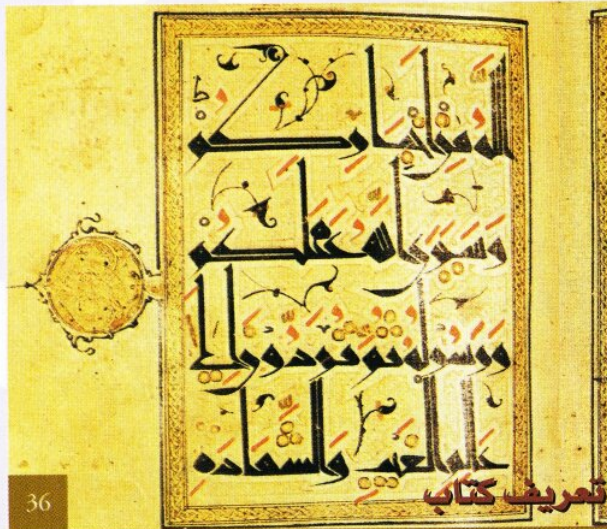 اللَّهُ مِنْ أَخْبَارِكُمْ
وَسَيَرَى اللَّهُ عَمَلَكُمْ
وَرَسُولُهُ ثُمَّ تُرَدُّونَ إِلَى
عَلِمِ الْغَيْبِ وَالشَّهَادَةِ
تعريف كتاب
36